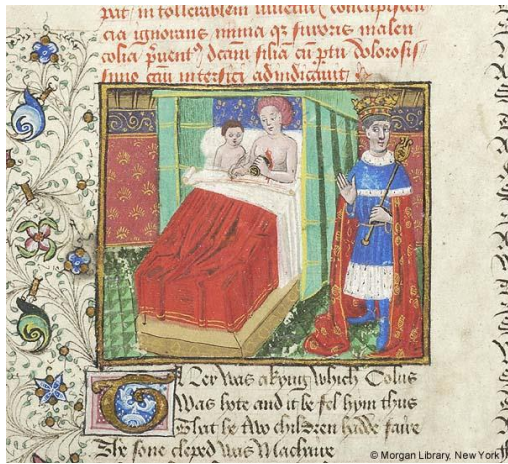 pat in tollerabilem iuuentu concupiscen
cia ignorans nimia qz furoris malen
colia puent dcam filia cu ptu dolorosis
simo casu interfici adiudicauit
Ther was a kyng which Eolus
Was hote and it be fel hym thus
That he two children hadde faire
The sone cleped was Machaire
© Morgan Library, New York